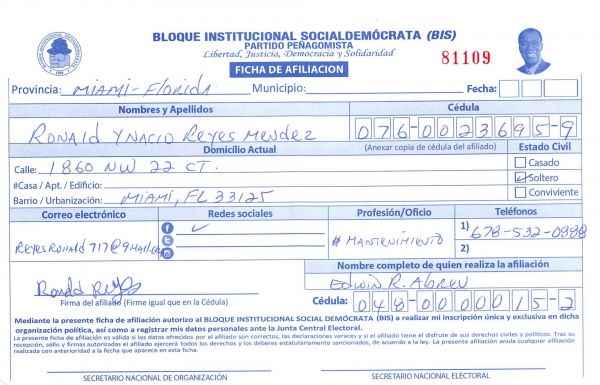 BLOQUE INSTITUCIONAL SOCIALDEMÓCRATA (BIS)
PARTIDO PEÑAGOMISTA
Libertad, Justicia, Democracia y Solidaridad
81109
FICHA DE AFILIACION
Provincia: MIAMI-FLORIDA Municipio: Fecha:
Nombres y Apellidos Cédula
RONAld YNACIO Reyes Mendez 076-0023695-9
Domicilio Actual (Anexar copia de cédula del afiliado) Estado Civil
Calle: 1860 NW 22 CT. Casado
#Casa / Apt. / Edificio: Soltero
Barrio / Urbanización: MIAMI, FL 33125 Conviviente
Correo electrónico Redes sociales Profesión/Oficio Teléfonos
REYESRONALD717@gmail.com # MANTENIMIENTO 1) 678-532-0888
2)
Nombre completo de quien realiza la afiliación
Ronald Reyes Edwin R. Abreu
Firma del afiliado (Firme igual que en la Cédula) Cédula: 048-0000015-2
Mediante la presente ficha de afiliación autorizo al BLOQUE INSTITUCIONAL SOCIAL DEMÓCRATA (BIS) a realizar mi inscripción única y exclusiva en dicha
organización política, así como a registrar mis datos personales ante la Junta Central Electoral.
La presente ficha de afiliación es válida si los datos ofrecidos por el afiliado son correctos, las declaraciones veraces y si el afiliado tiene el disfrute de sus derechos civiles y políticos. Tras su
recepción, sello y firmas autorizadas el afiliado ejercerá todos los derechos y los deberes estatutariamente sancionados, de acuerdo a la ley. La presente afiliación anula cualquier afiliación
realizada con anterioridad a la fecha que aparece en esta ficha.
SECRETARIO NACIONAL DE ORGANIZACIÓN SECRETARIO NACIONAL ELECTORAL